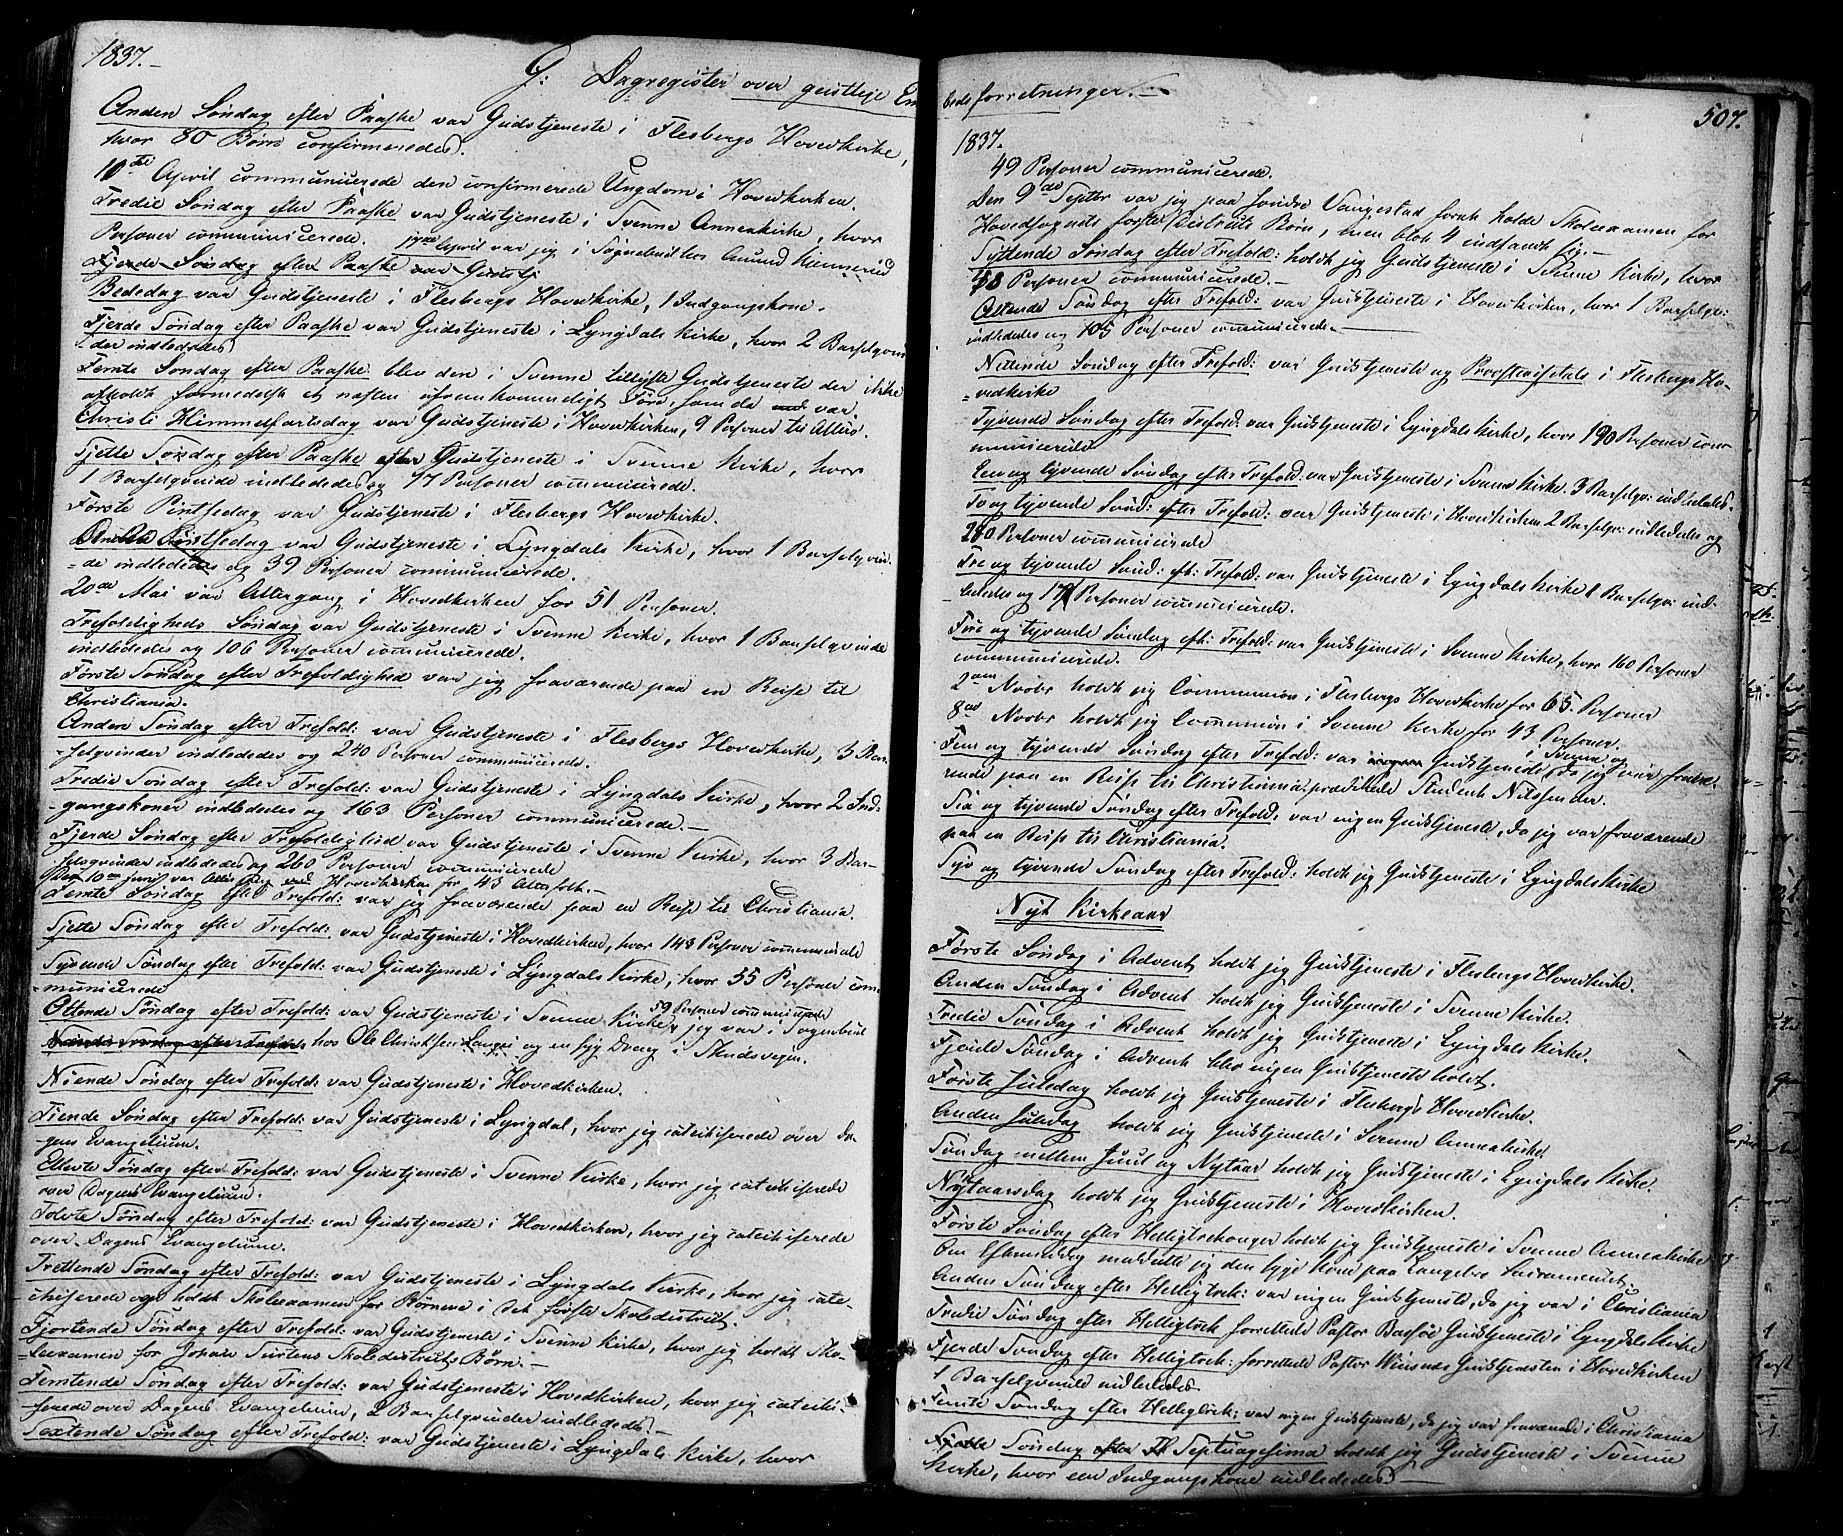 1837.-
G: Dagregister over geistlige Em
Anden Søndag efter Paaske var Gudstjeneste i Flesbergs Hovedkirke,
hvor 80 Børn confirmeredes.
10de April communicerede den confirmerede Ungdom i Hovedkirken.
Tredie Søndag efter Paaske var Gudstjeneste i Svenne Annexkirke, hvor
Personer communicerede. April var jeg i Sognebud hos Amund
Fjerde Søndag efter Paaske var Gudstj
Bededag var Gudstjeneste i Flesbergs Hovedkirke, 1 Indgangskone.
Fjerde Søndag efter Paaske var Gudstjeneste i Lyngdals Kirke, hvor 2 Barselqvin
der indleddes
Femte Søndag efter Paaske blev den i Svenne tillyste Gudstjeneste der ikke
afholdt formedelst et næsten ufremkommeligt Føre, som da var.
Christi Himmelfartsdag var Gudstjeneste i Hovedkirken, 9 Personer til Alters.
Sjette Søndag efter Paaske Gudstjeneste i Svenne Kirke, hvor
1 Barselqvinde indlededes og 77 Personer communicerede.
Første Pintsedag var Gudstjeneste i Flesbergs Hovedkirke.
Anden Pintsedag var Gudstjeneste i Lyngdals Kirke, hvor 1 Barselqvin-
=de indlededes og 39 Personer communicerede.
20de Mai var Altergang i Hovedkirken for 51 Personer.
Trefoldigheds Søndag var Gudstjeneste i Svenne Kirke, hvor 1 Barselqvinde
indlededes og 106 Personer communicerede.
Første Søndag efter Trefoldighed var jeg fraværende paa en Reise til
Christiania.
Anden Søndag efter Trefold: var Gudstjeneste i Flesbergs Hovedkirke, 3 Bar-
-selqvinder indlededes og 240 Personer communicerede.
Tredie Søndag efter Trefold: var Gudstjeneste i Lyngdals Kirke, hvor 2 Ind-
-gangskoner indlededes og 163 Personer communicerede.-
Fjerde Søndag efter Trefoldighed var Gudstjeneste i Svenne Kirke, hvor 3 Bar-
selqvinder indlededes og 260 Personer communicerede
Den 10de Juni var ved Hovedkirken for 43 Altersfolk.-
Femte Søndag efter Trefold: var jeg fraværende paa en Reise til Christiania.
Sjette Søndag efter Trefold: var Gudstjeneste i Hovedkirken, hvor 143 Personer communicerede
Syvende Søndag efter Trefold: var Gudstjeneste i Lyngdals Kirke, hvor 55 Personer com-
=municerede
59 Personer communicerede
Ottende Søndag efter Trefold: var Gudstjeneste i Svenne Kirke, jeg var i Sognebud
Niende Søndag efter Trefold: hos Ole Christensen og en syg Dreng i
Niende Søndag efter Trefold: var Gudstjeneste i Hovedkirken.
Tiende Søndag efter Trefold: var Gudstjeneste i Lyngdal, hvor jeg catechiserede over Da-
gens Evangelium.
Ellevte Søndag efter Trefold: var Gudstjeneste i Svenne Kirke, hvor jeg catechiserede
over Dagens Evangelium.
Tolvte Søndag efter Trefold: var Gudstjeneste i Hovedkirken, hvor jeg catechiserede
over Dagens Evangelium.
Trettende Søndag efter Trefold: var Gudstjeneste i Lyngdals Kirke, hvor jeg cate-
chiserede og holdt Skoleexamen for Børnene i det første Skoledistrict.
Fjortende Søndag efter Trefold: var Gudstjeneste i Svenne Kirke, hvor jeg holdt Sko-
=leexamen for Johan Skoledistricts Børn.-
Femtende Søndag efter Trefold: var Gudstjeneste i Hovedkirken, hvor jeg catechi-
serede over Dagens Evangelium, 2 Barselqvinder indlededes.-
Sextende Søndag efter Trefold: var Gudstjeneste i Lyngdals Kirke, hvor
bedsforretninger.-
507.
1837.
49 Personer communicerede.
Den 9de Septbr var jeg paa Søndre Vangestad forat holde Skoleexamen for
Hovedsognets første Districts Børn, men blot 4 indfandt sig.-
Syttende Søndag efter Trefold: holdt jeg Gudstjeneste i Svenne Kirke, hvor
58 Personer communicerede.-
Attende Søndag efter Trefold: var Gudstjeneste i Hovedkirken, hvor 1 Barselqv:
indlededes og 105 Personer communicerede.-
Nittende Søndag efter Trefold: var Gudstjeneste og Provstevisitats i Flesbergs Ho-
=vedkirke
Tyvende Søndag efter Trefold: var Gudstjeneste i Lyngdals Kirke, hvor 190 Personer com-
municerede
Een og tyvende Søndag efter Trefold: var Gudstjeneste i Svenne Kirke. 3 Barselqv: indlededes.
To og tyvende Sønd: efter Trefold: var Gudstjeneste i Hovedkirken 2 Barselqv: indlededes og
260 Personer communicerede
Tre og tyvende Sønd: eft: Trefold: var Gudstjeneste i Lyngdals Kirke 1 Barselqv: ind-
lededes og 171 Personer communicerede.
Fire og tyvende Søndag eft: Trefold: var Gudstjeneste i Svenne Kirke, hvor 160 Personer
communicerede.
2den Novbr holdt jeg Communion i Flesbergs Hovedkirke for 65 Personer
8de Novbr holdt jeg Communion i Svenne Kirke for 43 Personer.
i Svenne og
Fem og tyvende Søndag efter Trefold: var ingen Gudstjeneste, da jeg var fravæ-
rende paa en Reise til Christiania prædikede Student Nilssen der.
Sex og tyvende Søndag efter Trefold: var ingen Gudstjeneste, da jeg var fraværende
paa en Reise til Christiania.
Syv og tyvende Søndag efter Trefold: holdt jeg Gudstjeneste i Lyngdals Kirke
Nyt Kirkeaar
Første Søndag i Advent holdt jeg Gudstjeneste i Flesbergs Hovedkirke.
Anden Søndag i Advent holdt jeg Gudstjeneste i Svenne Kirke.
Tredie Søndag i Advent holdt jeg Gudstjeneste i Lyngdals Kirke.
Fjerde Søndag i Advent blev ingen Gudstjeneste holdt.
Første Juledag holdt jeg Gudstjeneste i Flesbergs Hovedkirke.
Anden Juledag holdt jeg Gudstjeneste i Svenne Annexkirke.
Søndag mellem Juul og Nytaar holdt jeg Gudstjeneste i Lyngdals Kirke.
Nytaarsdag holdt jeg Gudstjeneste i Hovedkirken.
Første Søndag efter Helligtrekonger holdt jeg Gudstjeneste i Svenne Annexkirke og
Om Eftermiddag meddeelte jeg den syge Kone paa Langebro Sacramentet.
Anden Søndag efter Helligtrek: var ingen Gudstjeneste, da jeg var i Christiania
Tredie Søndag efter Helligtrek forrettede Pastor Barfod Gudstjeneste i Lyngdals Kirke
Fjerde Søndag efter Helligtrek: forrettede Pastor Gudstjenesten i Hovedkirken
1 Barselqvinde indlededes.
Femte Søndag efter Helligtrek: var ingen Gudstjeneste, da jeg var fraværende i Christiania
Sjette Søndag efter H Septuagesima holdt jeg Gudstjeneste i Svenne
Kirke, hvor een Indgangskone indlededes.-